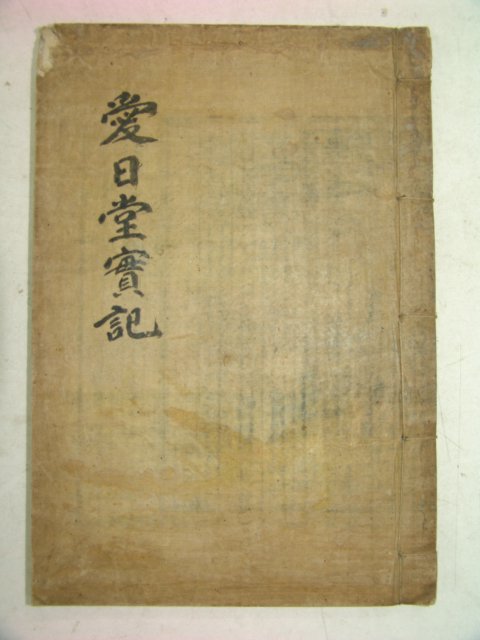 愛日堂實記